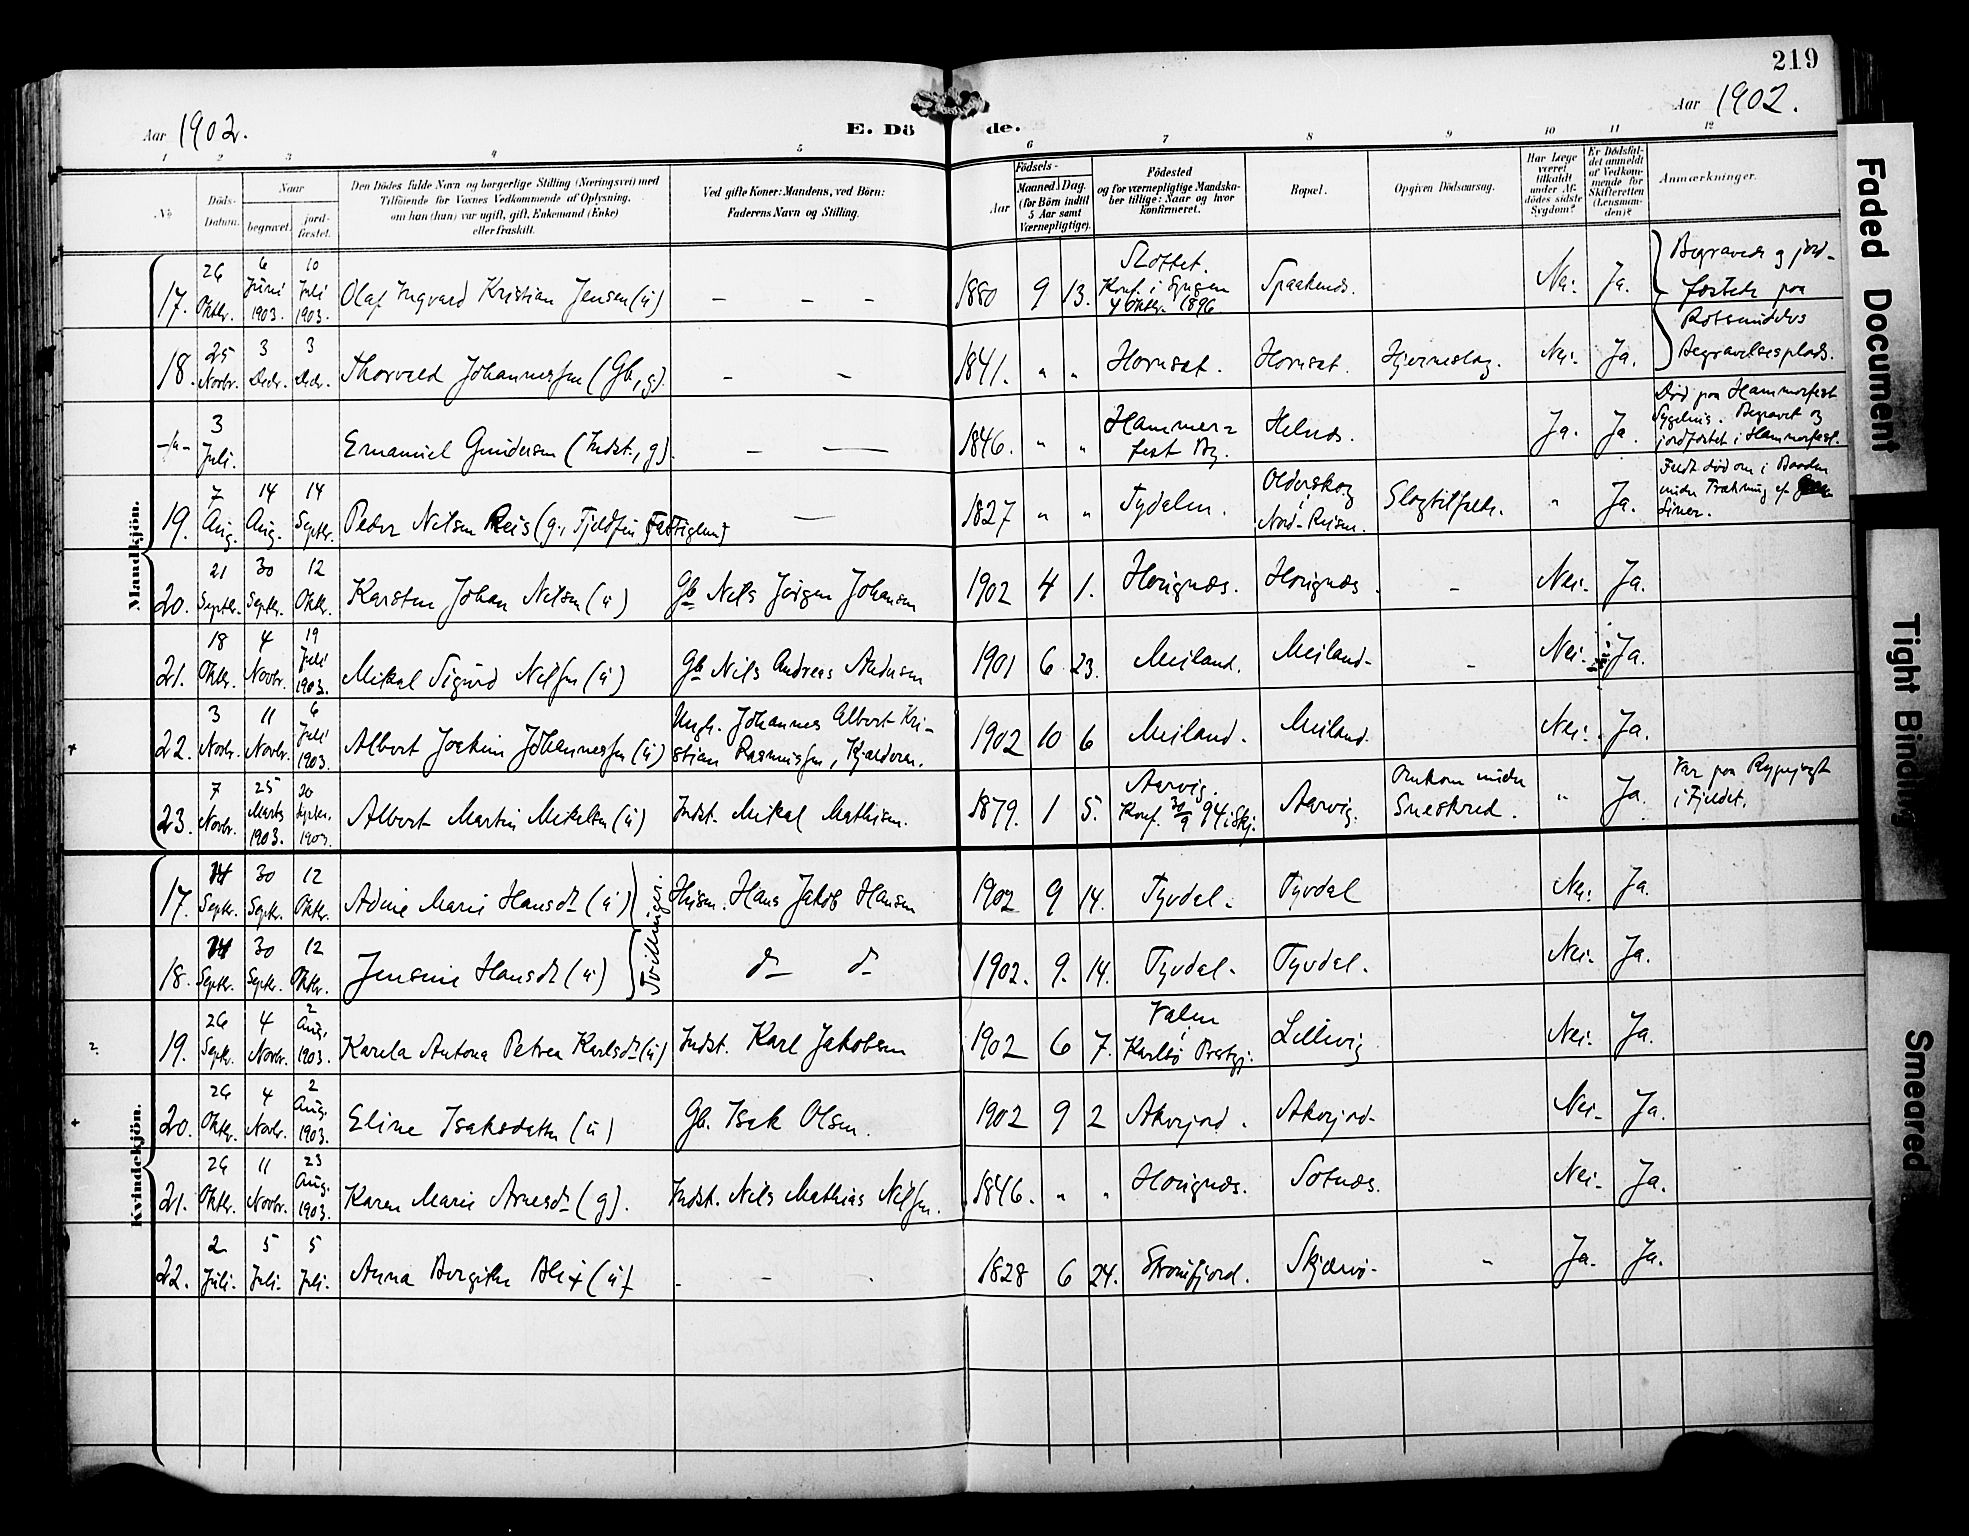 219
Aar 1902.
E. Dö
de.
Aar 1902.
1 2 3 4 5 6 7 8 9 10 11 12
No.
Döds-Datum.
Naar
begravet.
jord-fæstet.
Den Dödes fulde Navn og borgerlige Stilling (Næringsvei) med
Tilföiende for Voxnes Vedkommende af Oplysning,
om han (hun) var ugift, gift, Enkemand (Enke)
eller fraskilt.
Ved gifte Koner: Mandens, ved Börn:
Faderens Navn og Stilling.
Födsels-
Aar
Maaned Dag.
(for Börn indtil
5 Aar samt
Værnepligtige).
Födested
og for værnepligtige Mandska-
ber tillige: Naar og hvor
Konfirmeret.
Bopæl.
Opgiven Dödsaarsag.
Har Læge
været
tilkaldt
under Af-
dödes sidste
Sygdom?
Er Dödsfal-
det anmeldt
af Vedkom-
mende for
Skifteretten
(Lensman-
den)?
Anmærkninger.
Mandkjön.
17. 26 Oktbr. 6 Juni 1903. 10 Juli 1903. Olaf Ingvard Kristian Jensen (ú) – – – 1880 9 13. Slottet. Konf. i Lyngen 4 Oktbr. 1896. Spaaknes. Nei. Ja. Begravede og jord-
fæstede paa
Rotsundelvs
Begravelsesplads.
18. 25 Novbr. 3 Decbr. 3 Decbr. Thorvald Johannessen (Gb., g). – – 1841. " " Hornsat. Hornsat. Hjerneslag. Nei. Ja.
3 Juli. Emanuel Gundersen (Indst., g). – – 1846. " " Hammer=
fest By. Helnes. Ja. Ja. Död paa Hammerfest
Sygehus. Begravet og
jordfæstet i Hammerfest.
19. 7 Aug. 14 Aug. 14 Septbr. Peder Nilsen Reis (g., Fjeldfin, Fattiglem) – 1827 " " Tydalen. Olderskog i Nord-Reisen. Slagtilfælde. " Ja. Fundt död om i Baaden
under Trækning af
Liner.
20. 21 Septbr. 30 Septbr. 12 Oktbr. Karsten Johan Nilsen (ú) Gb. Nils Jörgen Johansen 1902 4 1. Havignæs. Havignæs. – Nei. Ja.
21. 18 Oktbr. 4 Novbr. 19 Juli 1903. Mikal Sigurd Nilsen (ú) Gb. Nils Andreas Andersen 1901 6 23. Meiland. Meiland. – Nei. Ja.
22. 3 Novbr. 11 Novbr. 6 Juli 1903. Albert Joakim Johannessen (ú) Ungk. Johannes Albert Kri-
stian Rasmussen, Kjækleren. 1902 10 6 Meiland. Meiland. Nei. Ja.
23. 7 Novbr. 25 Marts 1903. 20 Septbr. 1903. Albert Martin Mikelsen (ú) Indst. Mikal Mathisen. 1879. 1 5. Aarvig. Konf. 30/9 94 i Skj. Aarvig. Omkom under
Sneskred. " Ja. Var paa Rypejagt
i Fjeldet.
Kvindekjön.
17. 14 Septbr. 30 Septbr. 12 Oktbr. Adine Marie Hansdr. (ú) Husm. Hans Jakob Hansen 1902 9 14. Tyvdal. Tyvdal Nei. Ja.
Tvillinger.
18. 14 Septbr. 30 Septbr. 12 Oktbr. Jensine Hansdr. (ú) do do 1902. 9. 14. Tyvdal. Tyvdal. Nei. Ja.
19. 26 Septbr. 4 Novbr. 2 Aug. 1903. Karela Antona Petrea Karlsdr. (ú) Indst. Karl Jakobsen 1902 6 7. Valen i Karlsö Prestgj. Lillevig Nei. Ja.
20. 26 Oktbr. 4 Novbr. 2 Aug. 1903. Eline Isaksdatter (ú) Gb. Isak Olsen. 1902 9 2 Akorjord. Akorjord. Nei. Ja.
21. 26 Oktbr. 11 Novbr. 23 Aug. 1903. Karen Marie Arnesdr. (g). Indst. Nils Mathias Nilsen. 1846. " " Havignæs. Sotnæs. Nei. Ja.
22. 2 Juli. 5 Juli. 5 Juli. Anna Bergithe Blix (ú) – – 1828 6 24. Strömfjord. Skjærvö. " Ja. Ja.
Faded Document
Tight Binding
Smeared